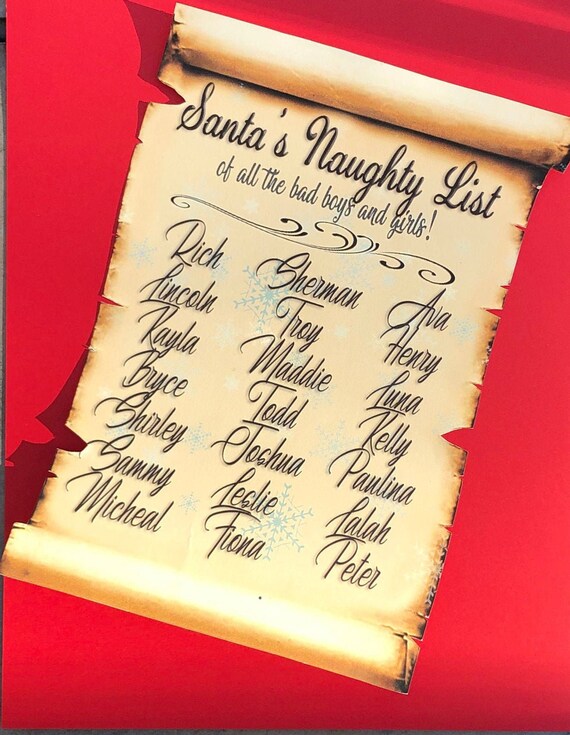 Santa's Naughty List
of all the bad boys and girls!
Rich
Lincoln
Kayla
Bryce
Shirley
Sammy
Micheal
Sherman
Troy
Maddie
Todd
Joshua
Leslie
Fiona
Ava
Henry
Luna
Kelly
Paulina
Lalah
Peter